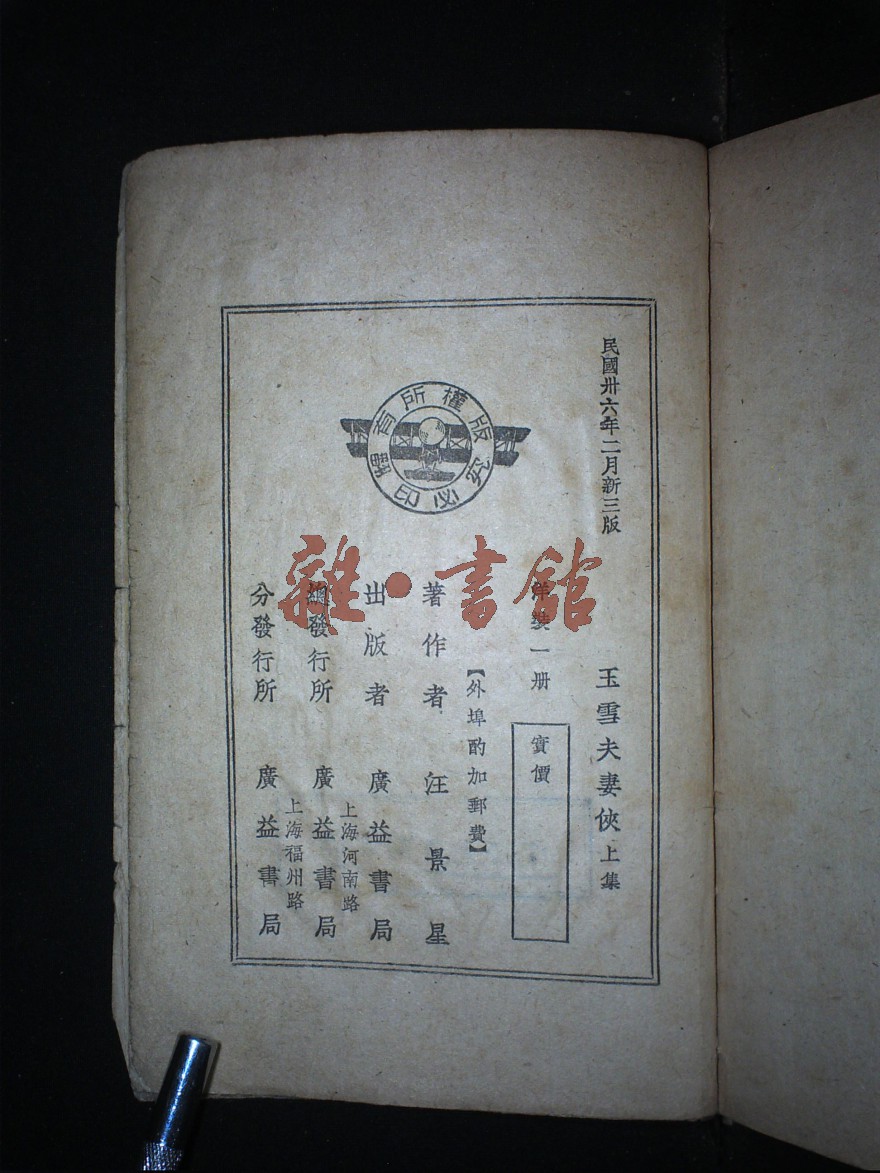 民國卅六年二月新三版
玉雪夫妻俠 上集
洋裝一册
實價
【外埠酌加郵費】
著作者 汪景星
出版者 廣益書局
上海河南路
總發行所 廣益書局
上海福州路
分發行所 廣益書局
版權所有
翻印必究
雜·書館